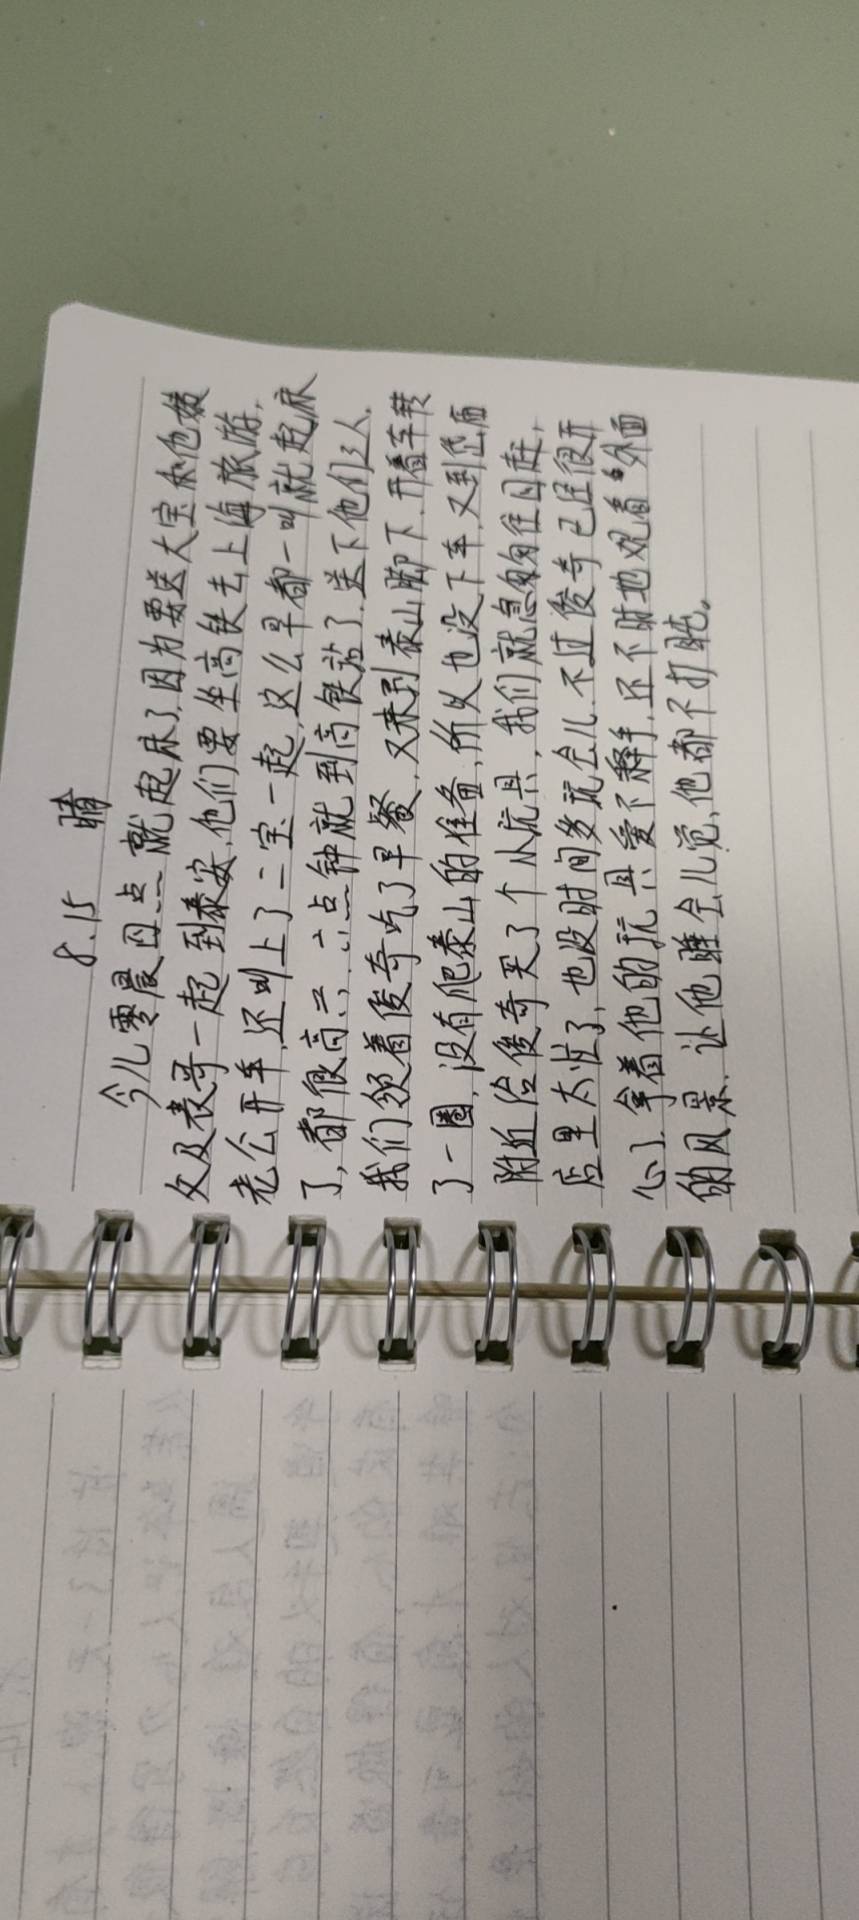 8.15 晴
今儿零晨四点就起床了,因为要送大宝和他姨
父及表哥一起到泰安,他们要坐高铁去上海旅游,
老公开车,还叫上了二宝一起,这么早都一叫就起床
了,都很高兴,六点钟就到高铁站了,送下他们三人,
我们领着俊奇吃了早餐,又来到泰山脚下,开着车转
了一圈,没有爬泰山的准备,所以也没下车,又到岱庙
附近给俊奇买了个小玩具,我们就急匆匆往回赶,
店里太忙了,也没时间多玩会儿,不过俊奇已经很开
心了,拿着他的玩具爱不释手,还不时地观看外面
的风景,让他睡会儿觉,他都不打盹。